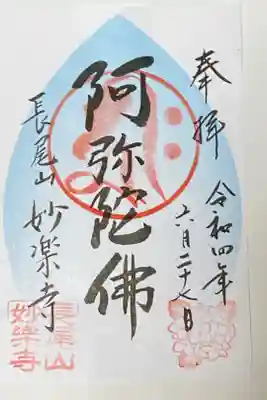 奉拝
令和四年
六月二十七日
阿弥陀佛
長尾山 妙楽寺
長尾山
妙楽寺